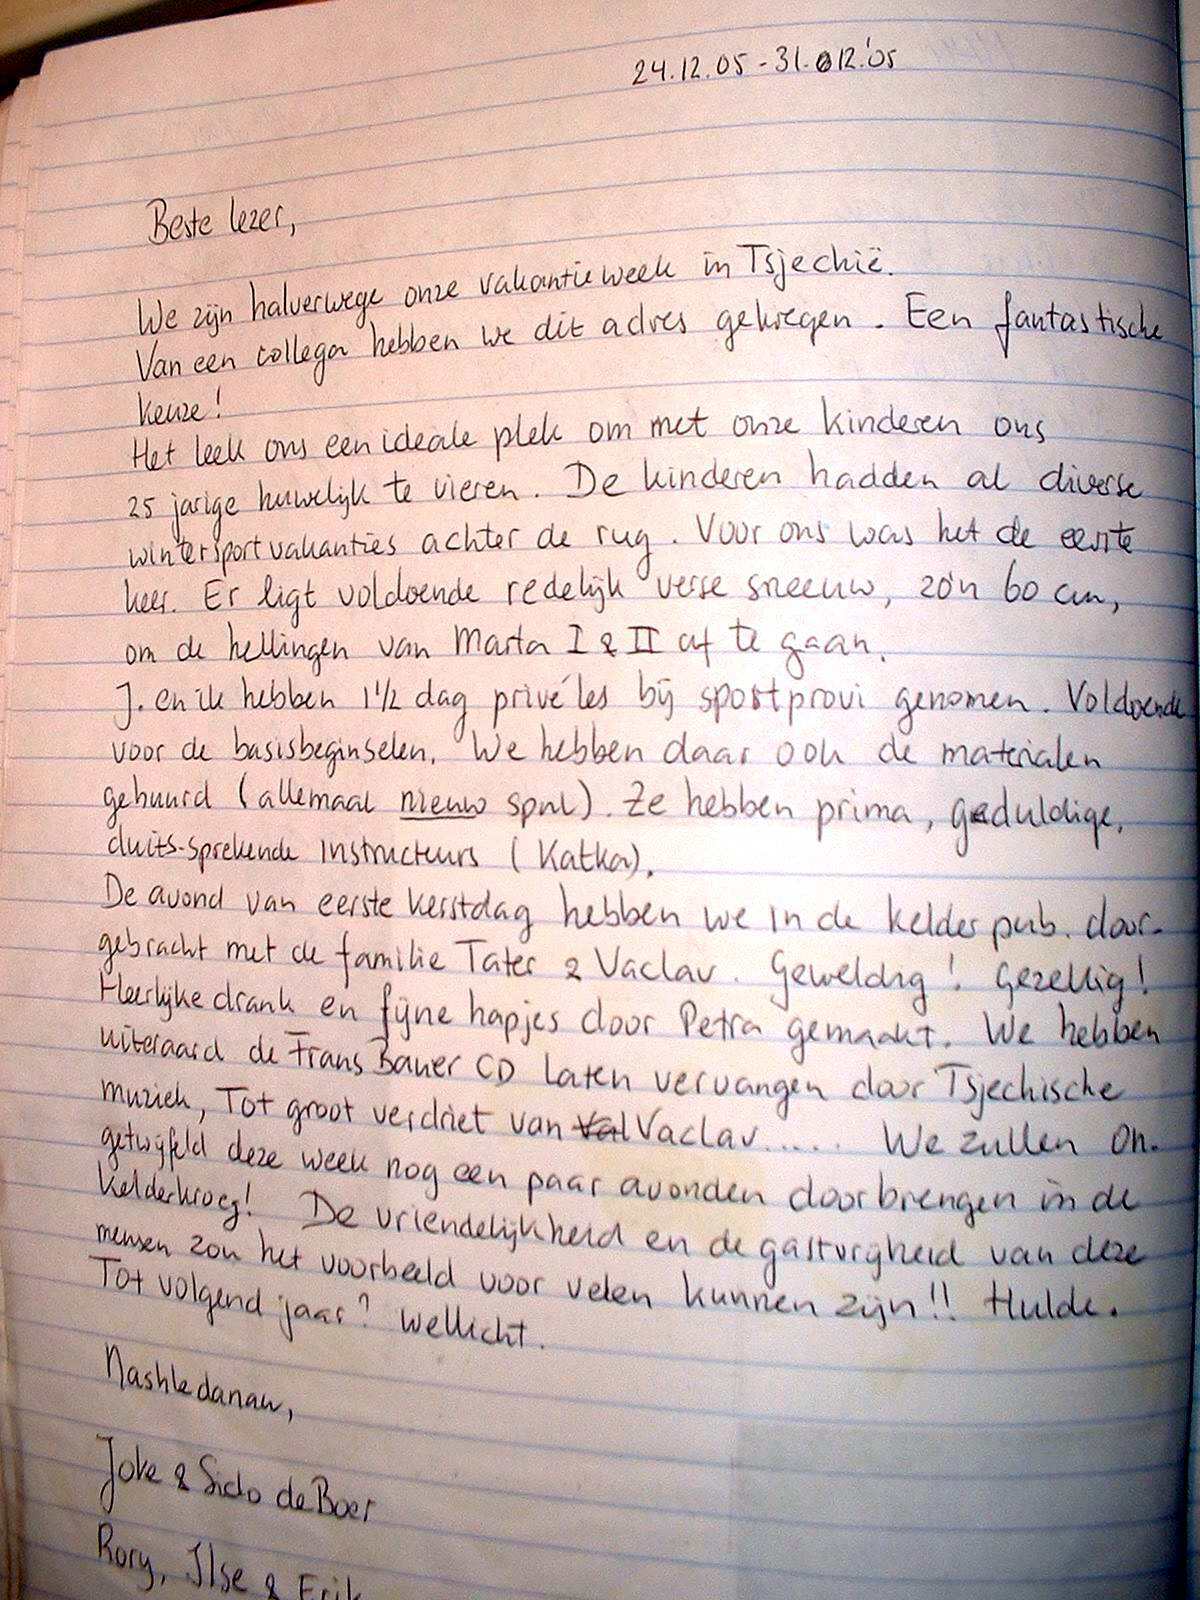 24.12.05 - 31.12.'05
Beste lezer,
We zijn halverwege onze vakantieweek in Tsjechië.
Van een collega hebben we dit adres gekregen. Een fantastische
keuze!
Het leek ons een ideale plek om met onze kinderen ons
25 jarige huwelijk te vieren. De kinderen hadden al diverse
wintersportvakanties achter de rug. Voor ons was het de eerste
keer. Er ligt voldoende redelijk verse sneeuw, zo'n 60 cm,
om de hellingen van Marta I & II af te gaan.
J. en ik hebben 1 1/2 dag privé les bij sportprovi genomen. Voldoende
voor de basisbeginselen. We hebben daar ook de materialen
gehuurd (allemaal nieuw spul). Ze hebben prima, geduldige,
duits-sprekende instructeurs (Katka).
De avond van eerste kerstdag hebben we in de kelder pub. door-
gebracht met de familie Tater & Vaclav. Geweldig! Gezellig!
Heerlijke drank en fijne hapjes door Petra gemaakt. We hebben
uiteraard de Frans Bauer CD laten vervangen door Tsjechische
muziek, Tot groot verdriet van Val Vaclav..... We zullen on-
getwijfeld deze week nog een paar avonden doorbrengen in de
kelderkroeg! De vriendelijkheid en de gastvrijheid van deze
mensen zou het voorbeeld voor velen kunnen zijn!! Hulde.
Tot volgend jaar? Wellicht.
Nashledanau,
Joke & Sido de Boer
Rory, Ilse & Erik